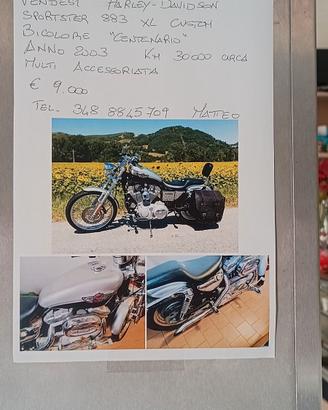 VENDESI HARLEY-DAVIDSON
SPORTSTER 883 XL CUSTOM
BICOLORE "CENTENARIO"
ANNO 2003 KM 30000 CIRCA
MULTI ACCESSORIATA
€ 9.000
TEL. 348 8845709 MATTEO